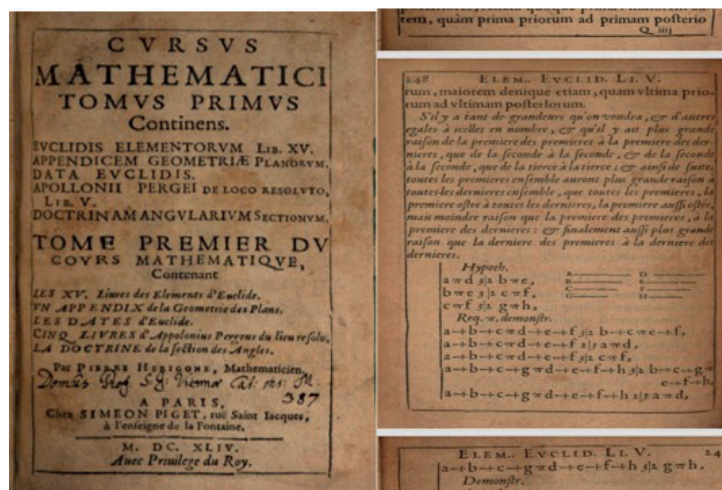 CVRSVS
MATHEMATICI
TOMVS PRIMVS
Continens.
EVCLIDIS ELEMENTORVM LIB. XV.
APPENDICEM GEOMETRIÆ PLANORVM.
DATA EVCLIDIS.
APOLLONII PERGEI DE LOCO RESOLVTO,
LIB. V.
DOCTRINAM ANGVLARIVM SECTIONVM.
TOME PREMIER DV
COVRS MATHEMATIQVE,
Contenant
LES XV. Liures des Elements d'Euclide.
VN APPENDIX de la Geometrie des Plans.
LES DATES d'Euclide.
CINQ LIVRES d'Appolonius Pergeus du lieu resolu.
LA DOCTRINE de la section des Angles.
Par PIERRE HERIGONE, Mathematicien.
387
A PARIS,
Chez SIMEON PIGET, ruë Saint Iacques,
à l'enseigne de la Fontaine.
M. DC. XLIV.
Auec Priuilege du Roy.
tem, quàm prima priorum ad primam posterio
Q iiij
248 ELEM. EVCLID. LI. V.
rum, maiorem denique etiam, quam vltima prio-
rum ad vltimam posteriorum.
S'il y a tant de grandeurs qu'on voudra, & d'autres
egales à icelles en nombre, & qu'il y ait plus grande
raison de la premiere des premieres à la premiere des der-
nieres, que de la seconde à la seconde, & de la seconde
à la seconde, que de la tierce à la tierce; & ainsi de suite:
toutes les premieres ensemble auront plus grande raison à
toutes les dernieres ensemble, que toutes les premieres, la
premiere ostée à toutes les dernieres, la premiere aussi ostée,
mais moindre raison que la premiere des premieres, à la
premiere des dernieres: & finalement aussi plus grande
raison que la derniere des premieres à la derniere des
dernieres.
Hypoth.
a π d 3|2 b π e,
b π e 3|2 c π f,
c π f 3|2 g π h,
A D
B E
C F
G H
Req. π. demonstr.
a+b+c π d+e+f 3|2 b+c π e+f,
a+b+c π d+e+f 2|3 a π d,
a+b+c π d+e+f 3|2 c π f,
a+b+c+g π d+e+f+h 3|2 b+c+g π
e+f+h,
a+b+c+g π d+e+f+h 2|3 a π d,
ELEM. EVCLID. LI. V. 24
a+b+c+g π d+e+f+h 3|2 g π h,
Demonstr.